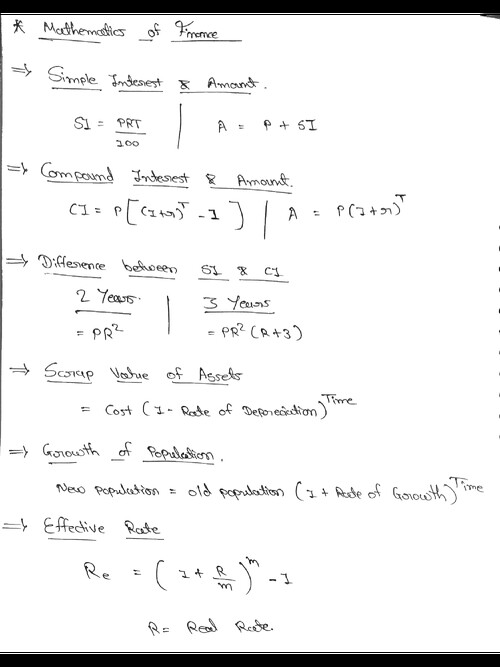 * Mathematics of Finance
⇒ Simple Interest & Amount.
SI = PRT/100 | A = P + SI
⇒ Compound Interest & Amount.
CI = P[(1+r)^T - 1] | A = P(1+r)^T
⇒ Difference between SI & CI
2 Years. | 3 Years
= PR² | = PR²(R+3)
⇒ Scrap Value of Assets
= Cost (1 - Rate of Depreciation)^Time
⇒ Growth of Population.
New population = old population (1 + Rate of Growth)^Time
⇒ Effective Rate
Re = (1 + R/m)^m - 1
R = Real Rate.